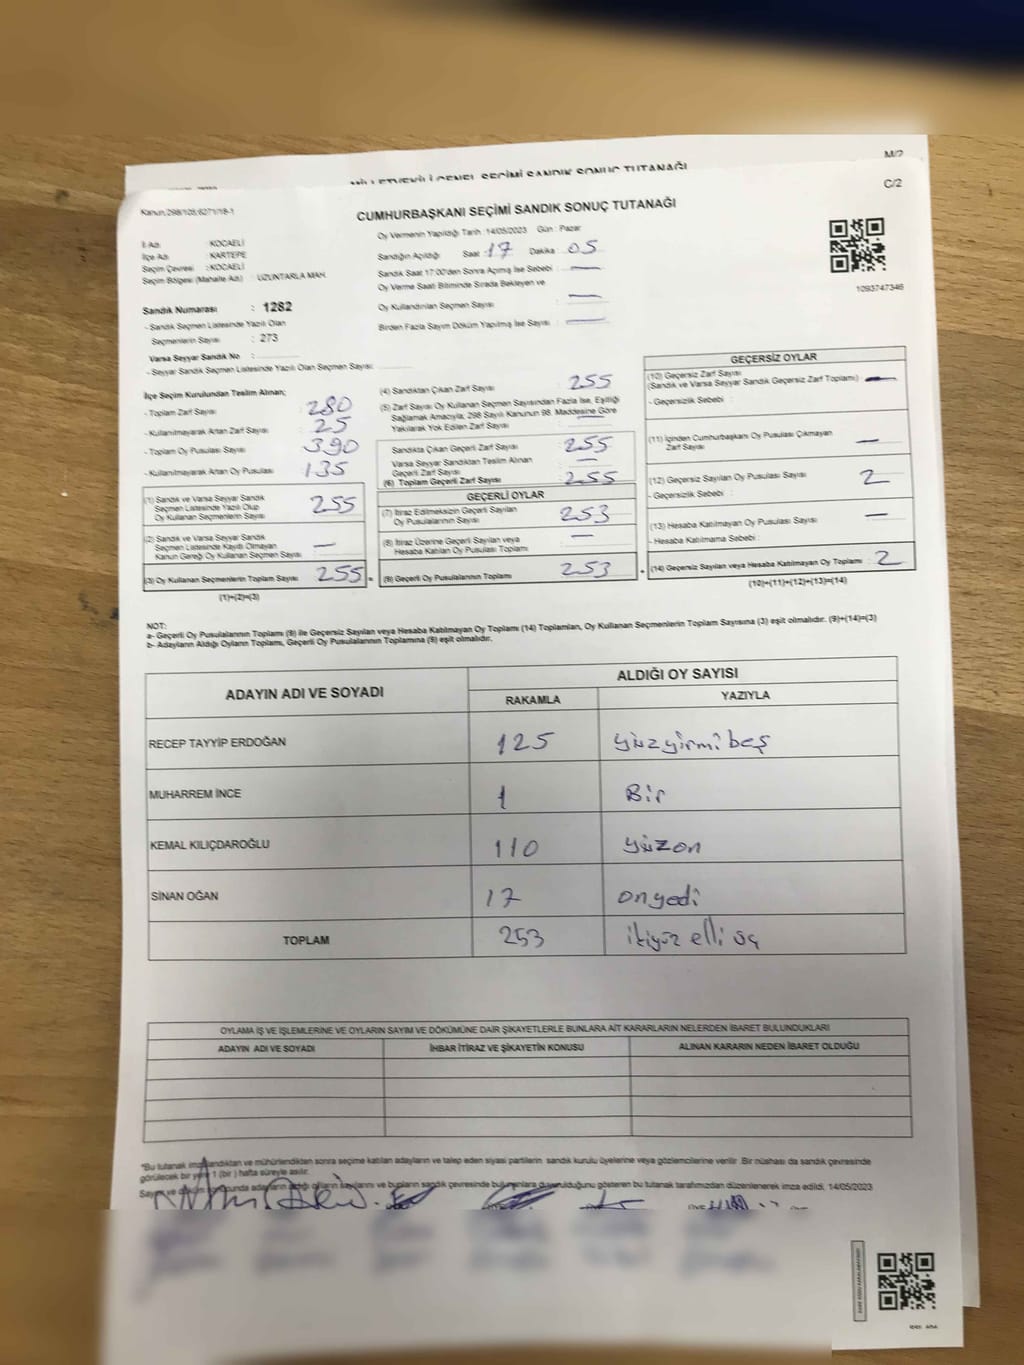 MİLLETVEKİLİ GENEL SEÇİMİ SANDIK SONUÇ TUTANAĞI
M/2
C/2
Kanun,298/108;6271/18-1
CUMHURBAŞKANI SEÇİMİ SANDIK SONUÇ TUTANAĞI
Oy Vermenin Yapıldığı Tarih :14/05/2023 Gün : Pazar
İl Adı : KOCAELİ
İlçe Adı : KARTEPE
Seçim Çevresi : KOCAELİ
Seçim Bölgesi (Mahalle Adı) : UZUNTARLA MAH.
Sandığın Açıldığı Saat : 17 Dakika : 05
Sandık Saat 17:00'den Sonra Açılmış İse Sebebi : —
Oy Verme Saati Bitiminde Sırada Bekleyen ve
Oy Kullandırılan Seçmen Sayısı : —
Birden Fazla Sayım Döküm Yapılmış İse Sayısı : —
1093747346
Sandık Numarası : 1282
- Sandık Seçmen Listesinde Yazılı Olan
Seçmenlerin Sayısı : 273
Varsa Seyyar Sandık No :
- Seyyar Sandık Seçmen Listesinde Yazılı Olan Seçmen Sayısı:
İlçe Seçim Kurulundan Teslim Alınan;
- Toplam Zarf Sayısı : 280
- Kullanılmayarak Artan Zarf Sayısı : 25
- Toplam Oy Pusulası Sayısı : 390
- Kullanılmayarak Artan Oy Pusulası : 135
(1) Sandık ve Varsa Seyyar Sandık
Seçmen Listesinde Yazılı Olup
Oy Kullanan Seçmenlerin Sayısı : 255
(2) Sandık ve Varsa Seyyar Sandık
Seçmen Listesinde Kaydı Olmayan
Kanun Gereği Oy Kullanan Seçmen Sayısı : —
(3) Oy Kullanan Seçmenlerin Toplam Sayısı : 255 =
(1)+(2)=(3)
(4) Sandıktan Çıkan Zarf Sayısı : 255
(5) Zarf Sayısı Oy Kullanan Seçmen Sayısından Fazla İse, Eşitliği
Sağlamak Amacıyla; 298 Sayılı Kanunun 98. Maddesine Göre
Yakılarak Yok Edilen Zarf Sayısı : —
Sandıkta Çıkan Geçerli Zarf Sayısı : 255
Varsa Seyyar Sandıktan Teslim Alınan
Geçerli Zarf Sayısı : —
(6) Toplam Geçerli Zarf Sayısı : 255
GEÇERLİ OYLAR
(7) İtiraz Edilmeksizin Geçerli Sayılan
Oy Pusulalarının Sayısı : 253
(8) İtiraz Üzerine Geçerli Sayılan veya
Hesaba Katılan Oy Pusulası Toplamı : —
(9) Geçerli Oy Pusulalarının Toplamı : 253 +
GEÇERSİZ OYLAR
(10) Geçersiz Zarf Sayısı
(Sandık ve Varsa Seyyar Sandık Geçersiz Zarf Toplamı) : —
- Geçersizlik Sebebi :
(11) İçinden Cumhurbaşkanı Oy Pusulası Çıkmayan
Zarf Sayısı : —
(12) Geçersiz Sayılan Oy Pusulası Sayısı : 2
- Geçersizlik Sebebi :
(13) Hesaba Katılmayan Oy Pusulası Sayısı : —
- Hesaba Katılmama Sebebi :
(14) Geçersiz Sayılan veya Hesaba Katılmayan Oy Toplamı : 2
(10)+(11)+(12)+(13)=(14)
NOT:
a- Geçerli Oy Pusulalarının Toplamı (9) ile Geçersiz Sayılan veya Hesaba Katılmayan Oy Toplamı (14) Toplamları, Oy Kullanan Seçmenlerin Toplam Sayısına (3) eşit olmalıdır. (9)+(14)=(3)
b- Adayların Aldığı Oyların Toplamı, Geçerli Oy Pusulalarının Toplamına (9) eşit olmalıdır.
ADAYIN ADI VE SOYADI
ALDIĞI OY SAYISI
RAKAMLA YAZIYLA
RECEP TAYYİP ERDOĞAN 125 yüzyirmi beş
MUHARREM İNCE 1 Bir
KEMAL KILIÇDAROĞLU 110 yüzon
SİNAN OĞAN 17 onyedi
TOPLAM 253 ikiyüz elli üç
OYLAMA İŞ VE İŞLEMLERİNE VE OYLARIN SAYIM VE DÖKÜMÜNE DAİR ŞİKAYETLERLE BUNLARA AİT KARARLARIN NELERDEN İBARET BULUNDUKLARI
ADAYIN ADI VE SOYADI İHBAR İTİRAZ VE ŞİKAYETİN KONUSU ALINAN KARARIN NEDEN İBARET OLDUĞU
*Bu tutanak imzalandıktan ve mühürlendikten sonra seçime katılan adayların ve talep eden siyasi partilerin sandık kurulu üyelerine veya gözlemcilerine verilir. Bir nüshası da sandık çevresinde
görülecek bir yere 1 (bir) hafta süreyle asılır.
Sayım ve döküm sonucunda adayların aldığı oyların sayılarını ve bunların sandık çevresinde bulunanlara duyurulduğunu gösteren bu tutanak tarafımızdan düzenlenerek imza edildi. 14/05/2023